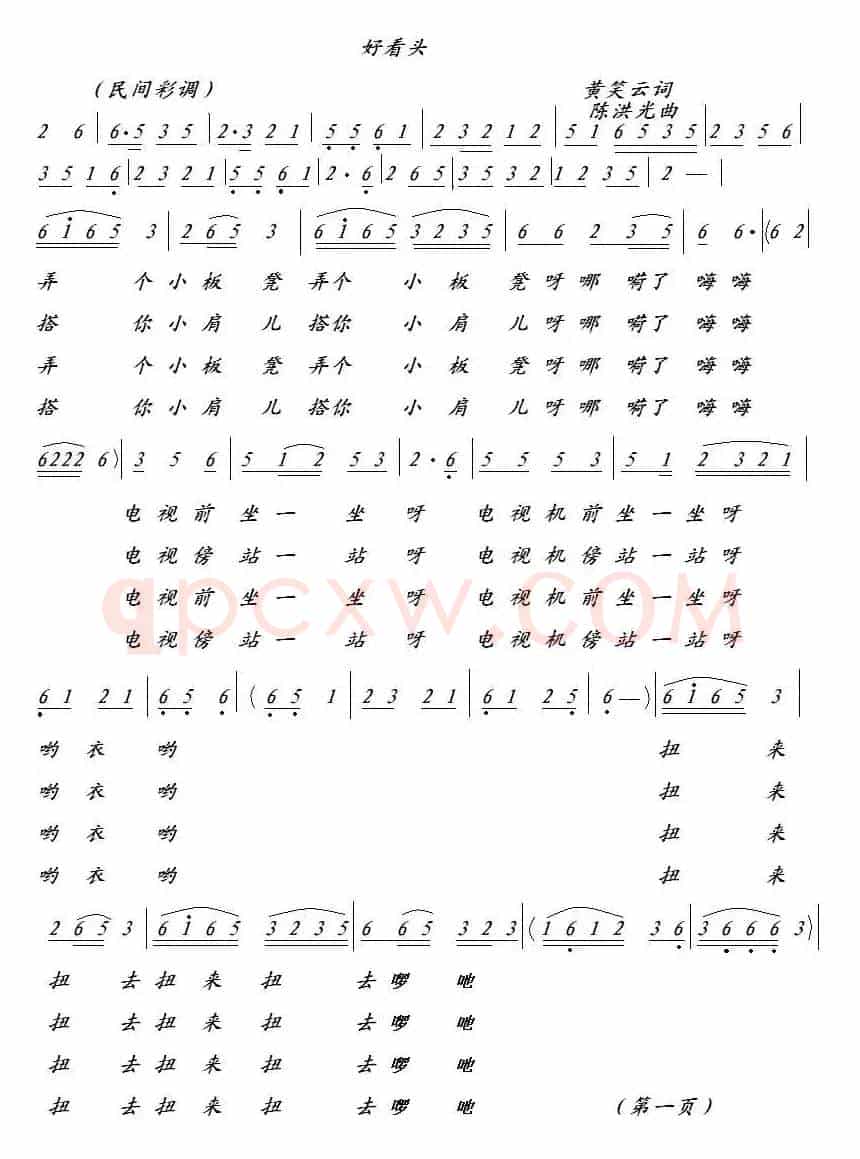 好看头
（民间彩调）
黄笑云词
陈洪光曲
2 6 | 6·5 3 5 | 2·3 2 1 | 5 5 6 1 | 2 3 2 1 2 | 5 1 6 5 3 5 | 2 3 5 6
3 5 1 6 | 2 3 2 1 | 5 5 6 1 | 2· 6 | 2 6 5 | 3 5 3 2 | 1 2 3 5 | 2 — |
6 i 6 5 3 | 2 6 5 3 | 6 i 6 5 3 2 3 5 | 6 6 2 3 5 | 6 6· | (6 2
弄 个小板 凳弄个 小板凳呀哪嗬了嗨嗨
搭 你小肩 儿搭你 小肩儿呀哪嗬了嗨嗨
弄 个小板 凳弄个 小板凳呀哪嗬了嗨嗨
搭 你小肩 儿搭你 小肩儿呀哪嗬了嗨嗨
6222 6) | 3 5 6 | 5 1 2 5 3 | 2· 6 | 5 5 5 3 | 5 1 2 3 2 1 |
电视前坐一 坐呀 电视机前坐一坐呀
电视傍站一 站呀 电视机傍站一站呀
电视前坐一 坐呀 电视机前坐一坐呀
电视傍站一 站呀 电视机傍站一站呀
qpcxw.COM
6 1 2 1 | 6 5 6 | (6 5 1 | 2 3 2 1 | 6 1 2 5 | 6 —) | 6 i 6 5 3 |
哟衣 哟 扭 来
哟衣 哟 扭 来
哟衣 哟 扭 来
哟衣 哟 扭 来
2 6 5 3 | 6 i 6 5 3 2 3 5 | 6 6 5 3 2 3 | (1 6 1 2 3 6 | 3 6 6 6 3) |
扭 去扭来扭 去啰吔
扭 去扭来扭 去啰吔
扭 去扭来扭 去啰吔
扭 去扭来扭 去啰吔
（第一页）